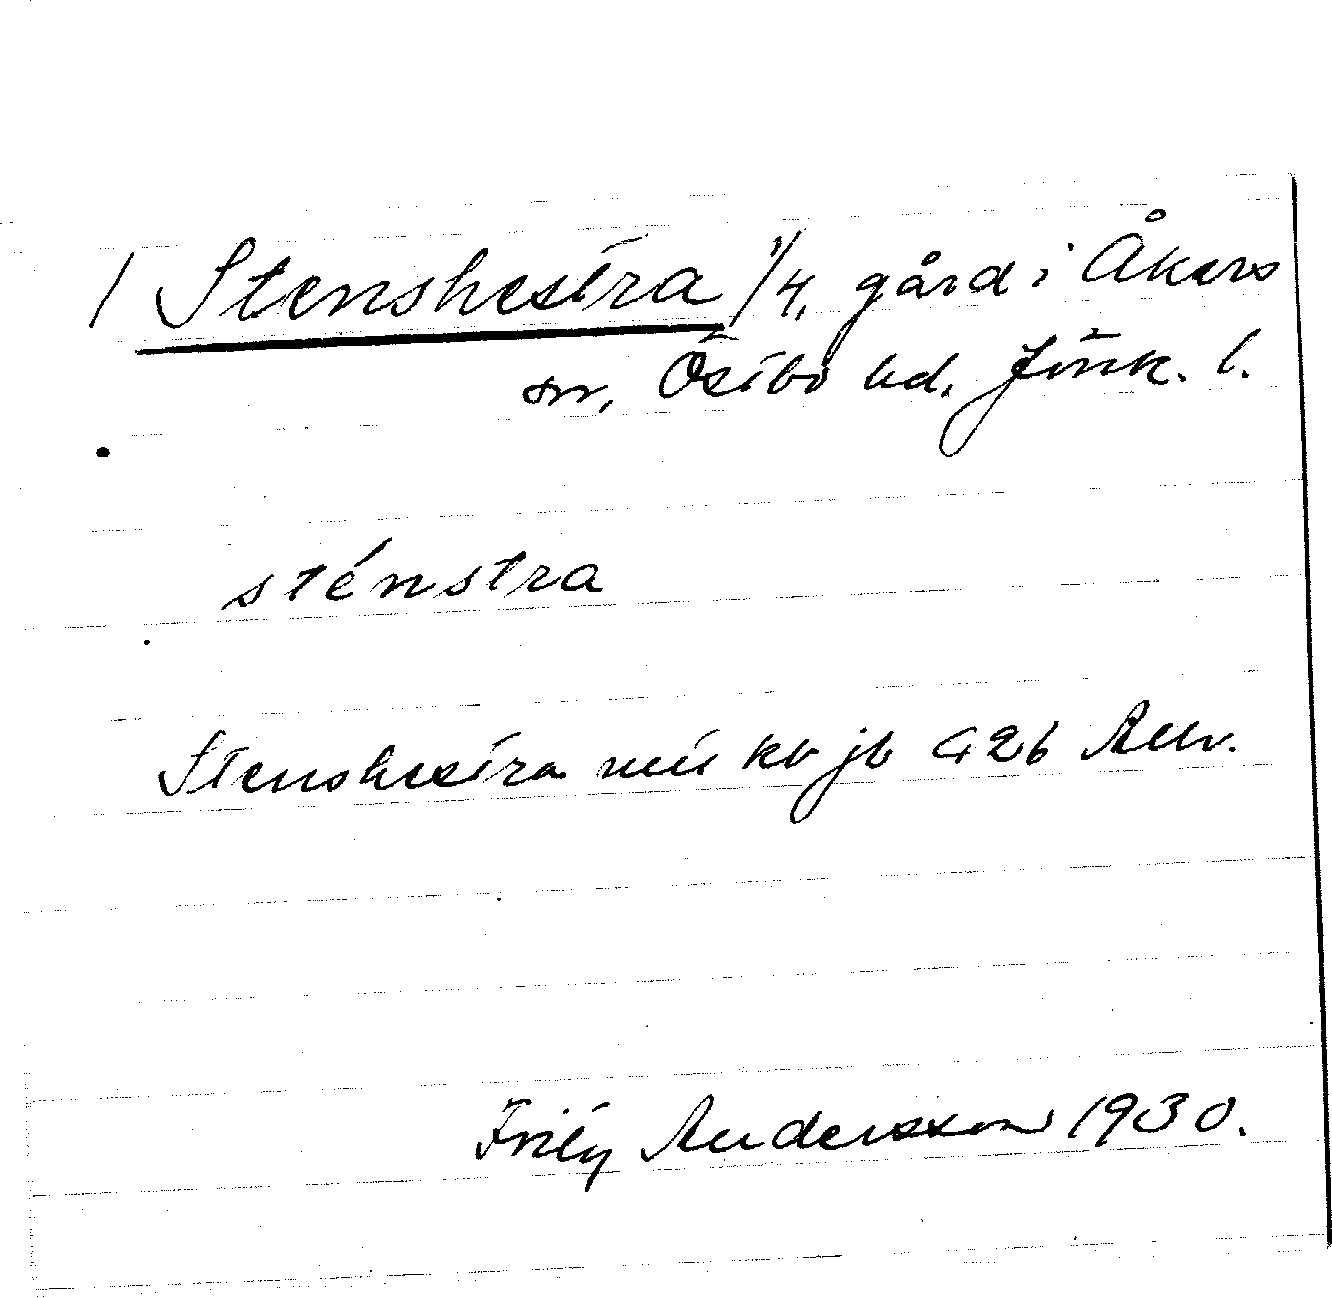 / Stenshestra 1/4, gård i Åkers
sn, Östbo hd. Jönk. l.
sténstra
Stenshestra jb
Frity Andersson 1930.